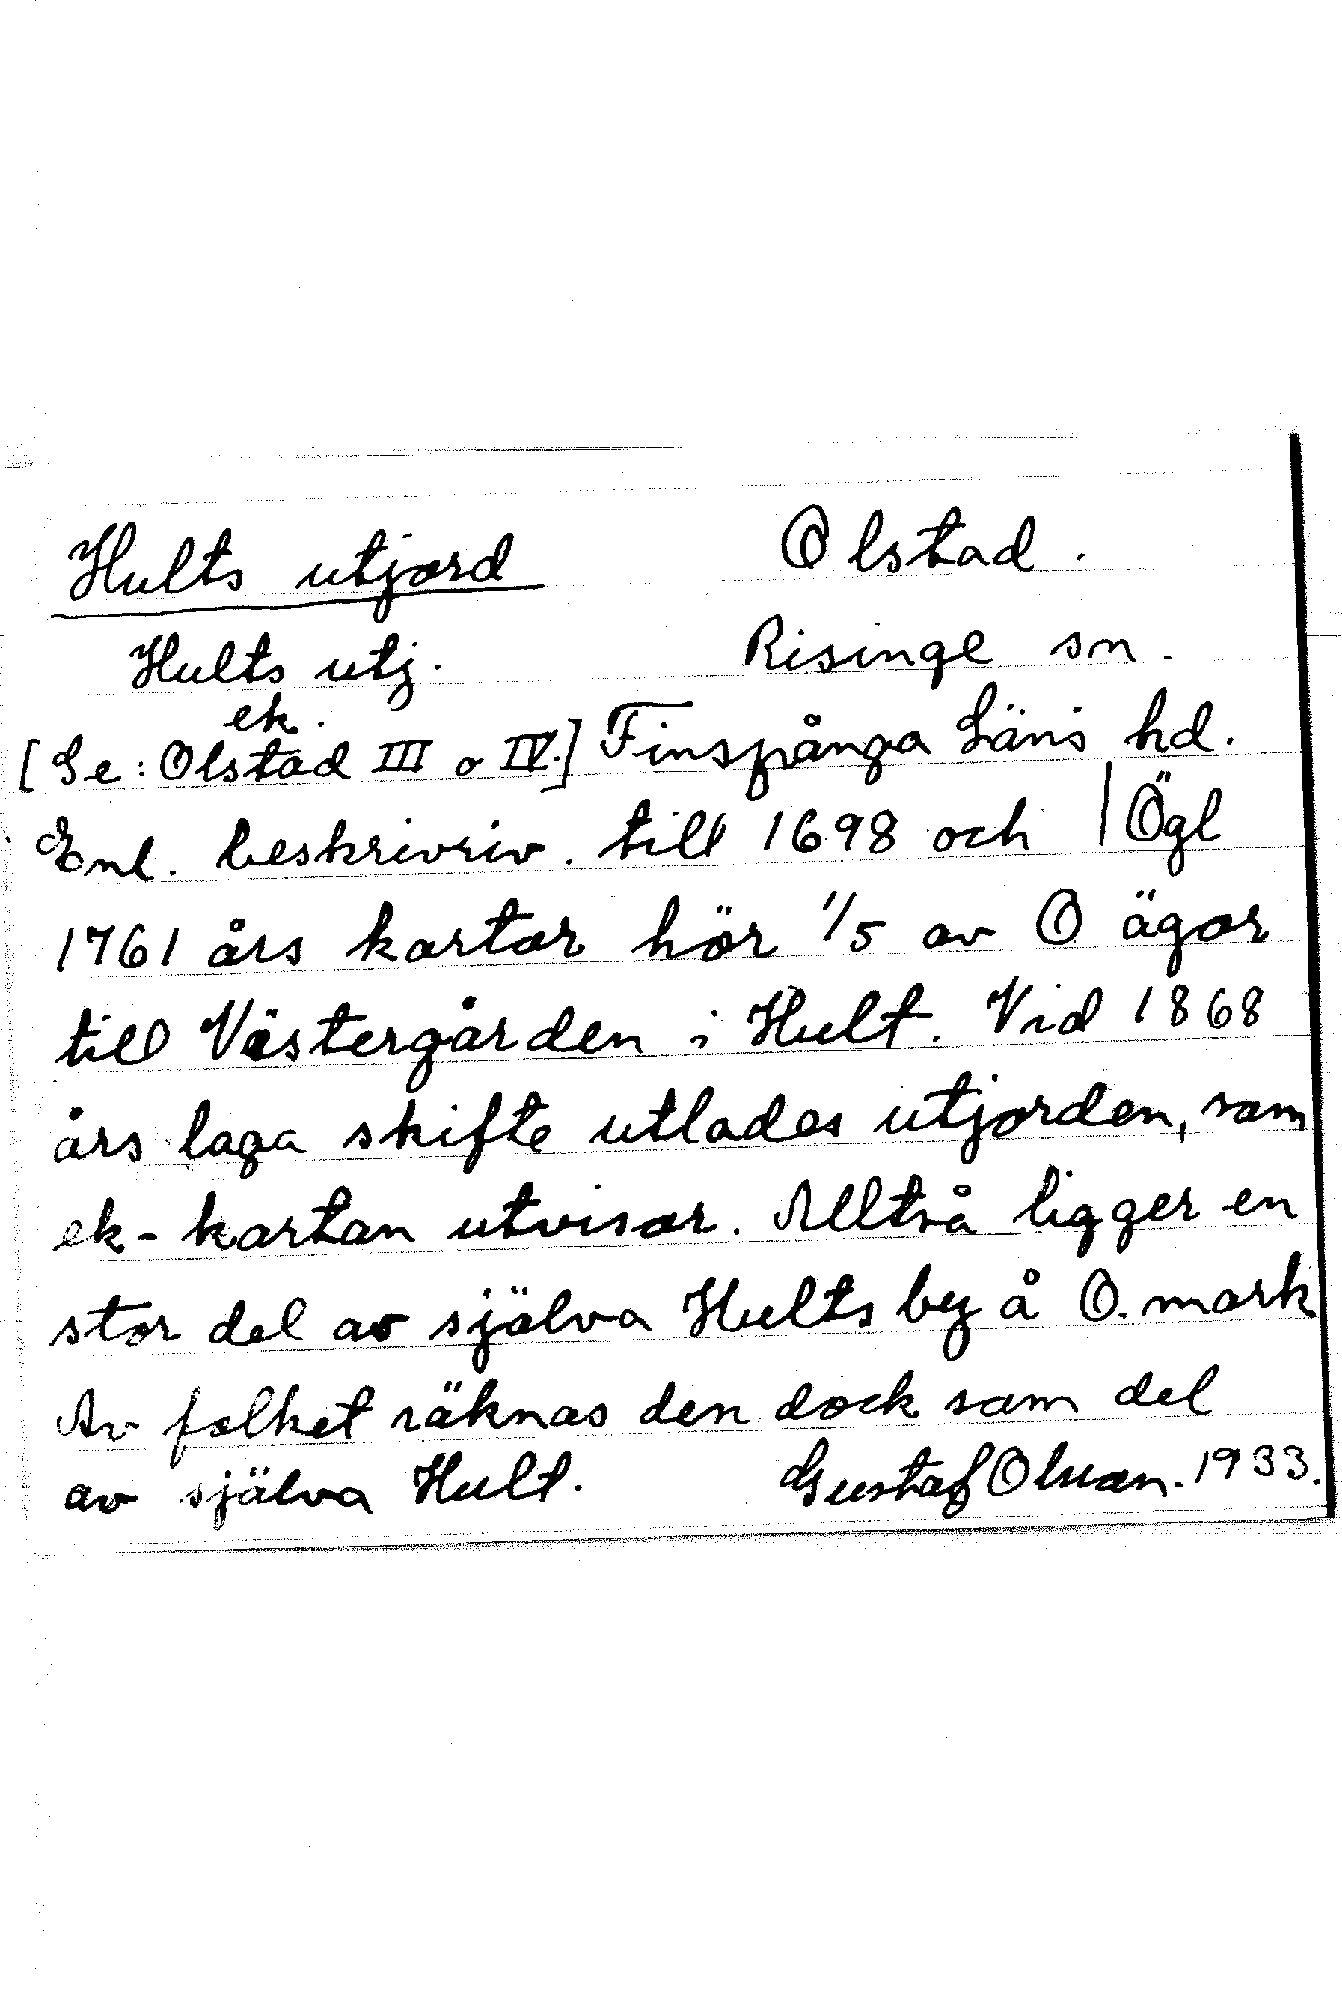 Hults utjord
Olstad.
Hults utj.
Risinge sn.
ek.
[Se: Olstad III o IV.]
Finspånga Läns hd.
Enl. beskrivriv. till 1698 och | Ögl
1761 års kartor hör 1/5 av O ägor
till Västergården i Hult. Vid 1868
års laga skifte utlades utjorden, som
ek-kartan utvisar. Alltså ligger en
stor del av själva Hults by å O. mark
Av folket räknas den dock som del
av själva Hult.
Gustaf Olsson. 1933.